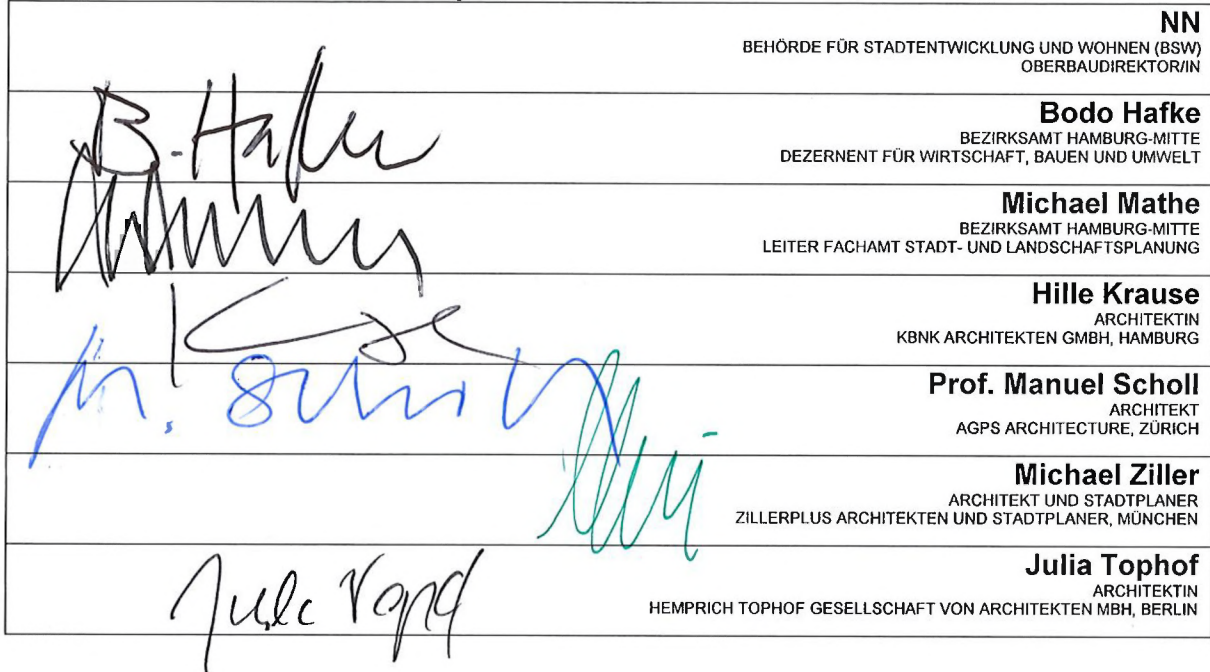 NN
BEHÖRDE FÜR STADTENTWICKLUNG UND WOHNEN (BSW)
OBERBAUDIREKTOR/IN
B. Hafke
Bodo Hafke
BEZIRKSAMT HAMBURG-MITTE
DEZERNENT FÜR WIRTSCHAFT, BAUEN UND UMWELT
Michael Mathe
BEZIRKSAMT HAMBURG-MITTE
LEITER FACHAMT STADT- UND LANDSCHAFTSPLANUNG
Hille Krause
ARCHITEKTIN
KBNK ARCHITEKTEN GMBH, HAMBURG
M. Scholl
Prof. Manuel Scholl
ARCHITEKT
AGPS ARCHITECTURE, ZÜRICH
Michael Ziller
ARCHITEKT UND STADTPLANER
ZILLERPLUS ARCHITEKTEN UND STADTPLANER, MÜNCHEN
Julia Tophof
ARCHITEKTIN
HEMPRICH TOPHOF GESELLSCHAFT VON ARCHITEKTEN MBH, BERLIN